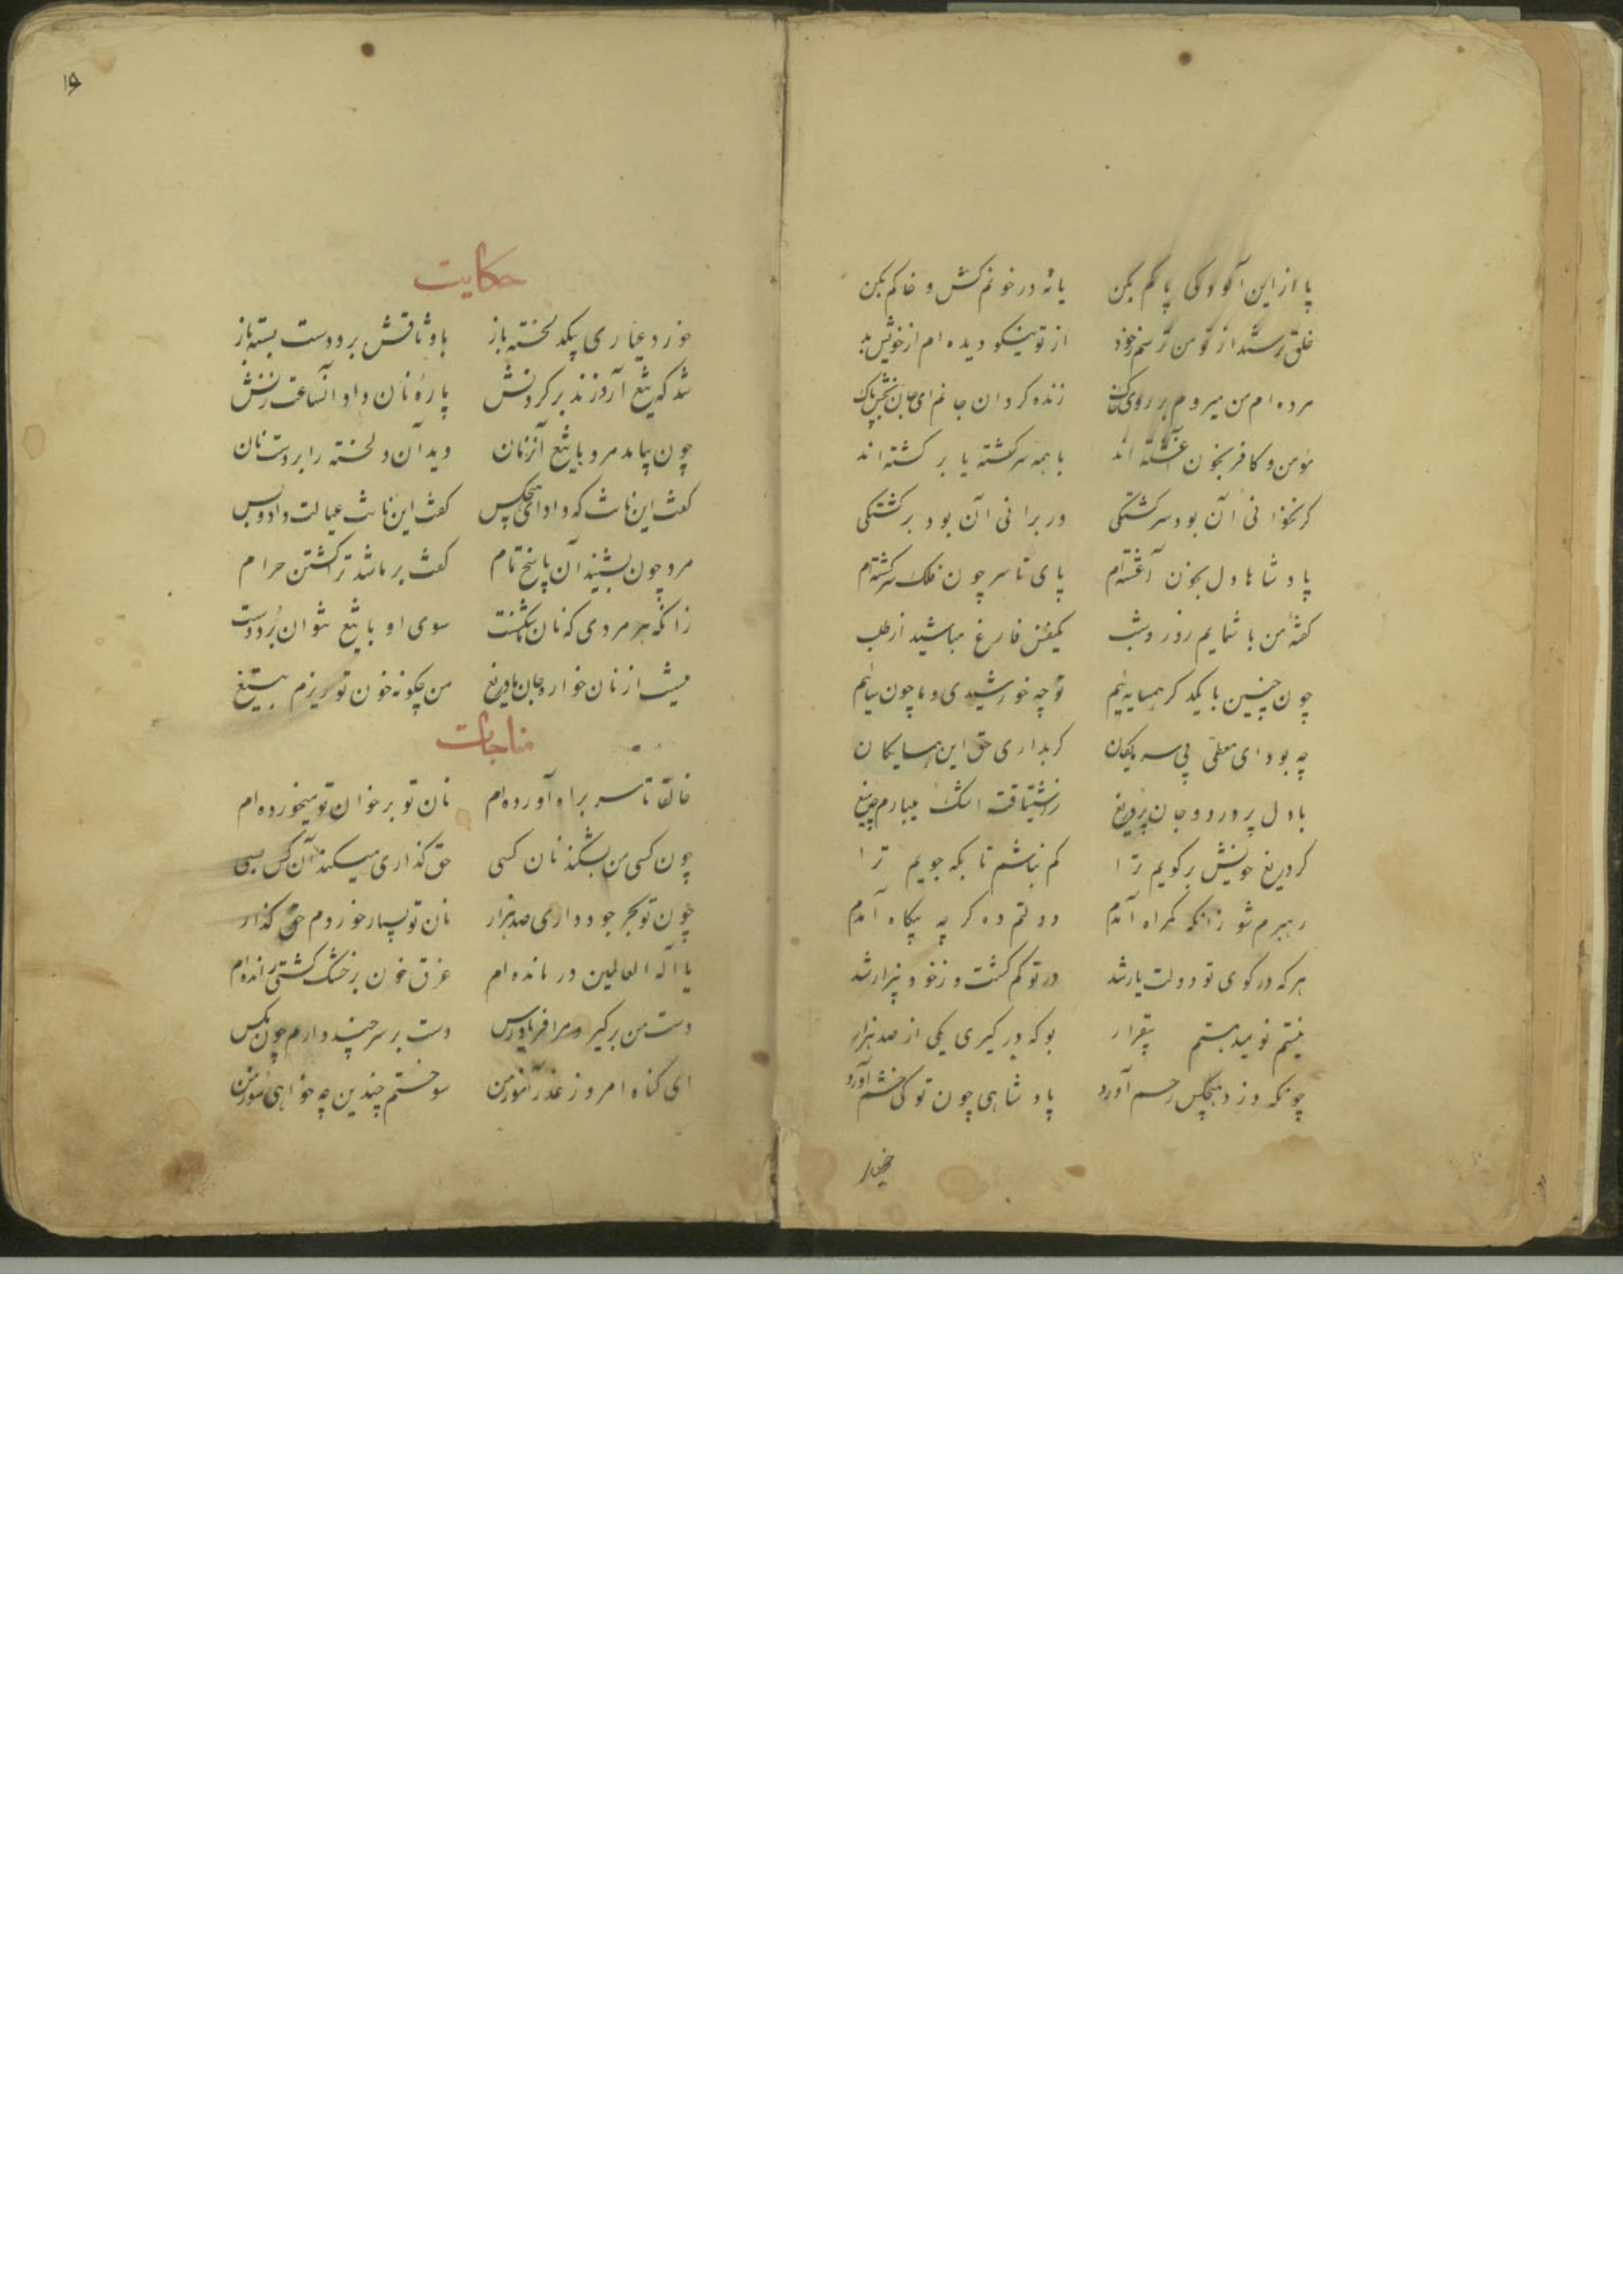 پا از این آلودگی پاکم بکن یا نه در خونم کش و خاکم بکن
خلق ترسند از تو من ترسم ز خود از تو نیکو دیده ام از خویش بد
مرده ام من میروم بر روی خاک زنده گردان جانم ای جان بخش پاک
مؤمن و کافر بخون آغشته اند یا همه سرگشته یا برگشته اند
گر بخوانی آن بود سرگشتگی ور برانی آن بود برگشتگی
پادشاها دل بخون آغشته ام پای تا سر چون فلک سرگشته ام
گفته من با شمایم روز و شب یکنفس فارغ مباشید از طلب
چون چنین با یکدگر همسایه ئیم تو چه خورشیدی و ما چون سایه ئیم
چه بود ای معطی بی سرمایگان گر بداری حق این همسایگان
با دل پر درد و جان پر دریغ ز اشتیاقت اشک میبارم چو میغ
گر دریغ خویش برگویم ترا گم نباشم تا بکه جویم ترا
رهبرم شو زانکه گمراه آمدم دولتم ده گر چه بیگاه آمدم
هر که در کوی تو دولت یار شد در تو گم گشت و ز خود بیزار شد
نیستم نومید هستم بیقرار بو که در گیری یکی از صد هزار
چونکه دزد هیچکس رحم آورد پادشاهی چون تو کی خشم آورد
۱۶
حکایت
خورد عیاری بیکدلخسته باز با وثاقش برد و دست بسته باز
شد که تیغ آرد زند بر گردنش پارهٔ نان داد آنساعت زنش
چون بیامد مرد با تیغ آنزمان دید آن دلخسته را بر دست نان
گفت این نانت که داد ای هیچکس گفت این نانت عیالت داد و بس
مرد چون بشنید آن پاسخ تمام گفت بر ما شد ترا کشتن حرام
زانکه هر مردی که نان ما شکست سوی او با تیغ نتوان برد دست
نیست از نان خواره جان ما دریغ من چگونه خون تو ریزم بتیغ
مناجات
خالقا تا سر براه آورده ام نان تو بر خوان تو میخورده ام
چون کسی من بشکند نان کسی حق گذاری میکند آن کس بسی
چون تو بحر جود داری صد هزار نان تو بسیار خوردم حق گذار
یا آله العالمین درمانده ام غرق خون بر خشک کشتی رانده ام
دست من برگیر و مرا فریاد رس دست بر سر چند دارم چون مگس
ای گناه امروز عذر آموز من سوختم چندین چه خواهی سوز من